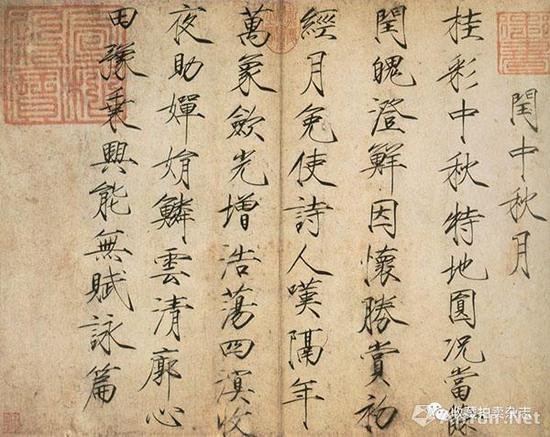 閏中秋月
桂彩中秋特地圓況當餘
閏魄澄鮮因懷勝賞初
經月免使詩人嘆隔年
萬象歛光增浩蕩四溟收
夜助嬋娟鱗雲清廓心
田豫乘興能無賦詠篇
收藏拍卖杂志
Artron.Net